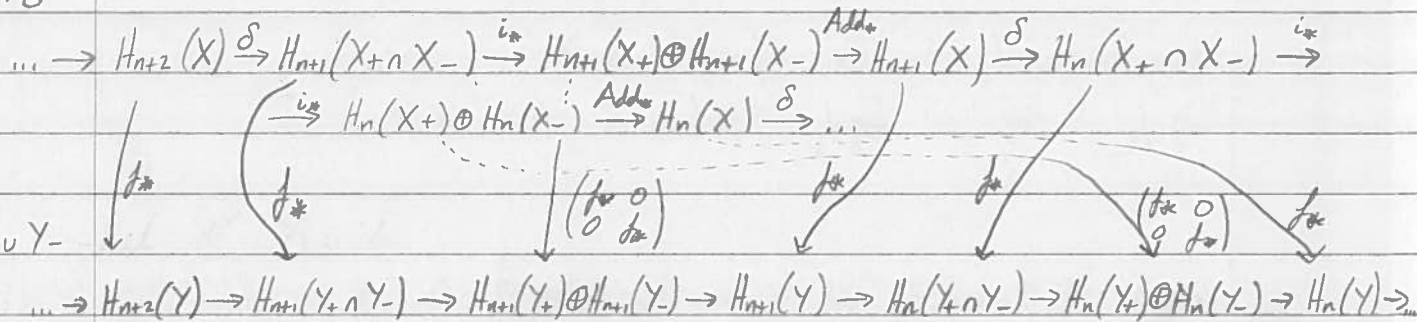 ... → Hn+2(X) δ→ Hn+1(X+ ∩ X-) i*→ Hn+1(X+) ⊕ Hn+1(X-) Add*→ Hn+1(X) δ→ Hn(X+ ∩ X-) i*→
i*→ Hn(X+) ⊕ Hn(X-) Add*→ Hn(X) δ→ ...
f* f* (f* 0 0 f*) f* f* (f* 0 0 f*) f*
∪ Y-
... → Hn+2(Y) → Hn+1(Y+ ∩ Y-) → Hn+1(Y+) ⊕ Hn+1(Y-) → Hn+1(Y) → Hn(Y+ ∩ Y-) → Hn(Y+) ⊕ Hn(Y-) → Hn(Y) → ...